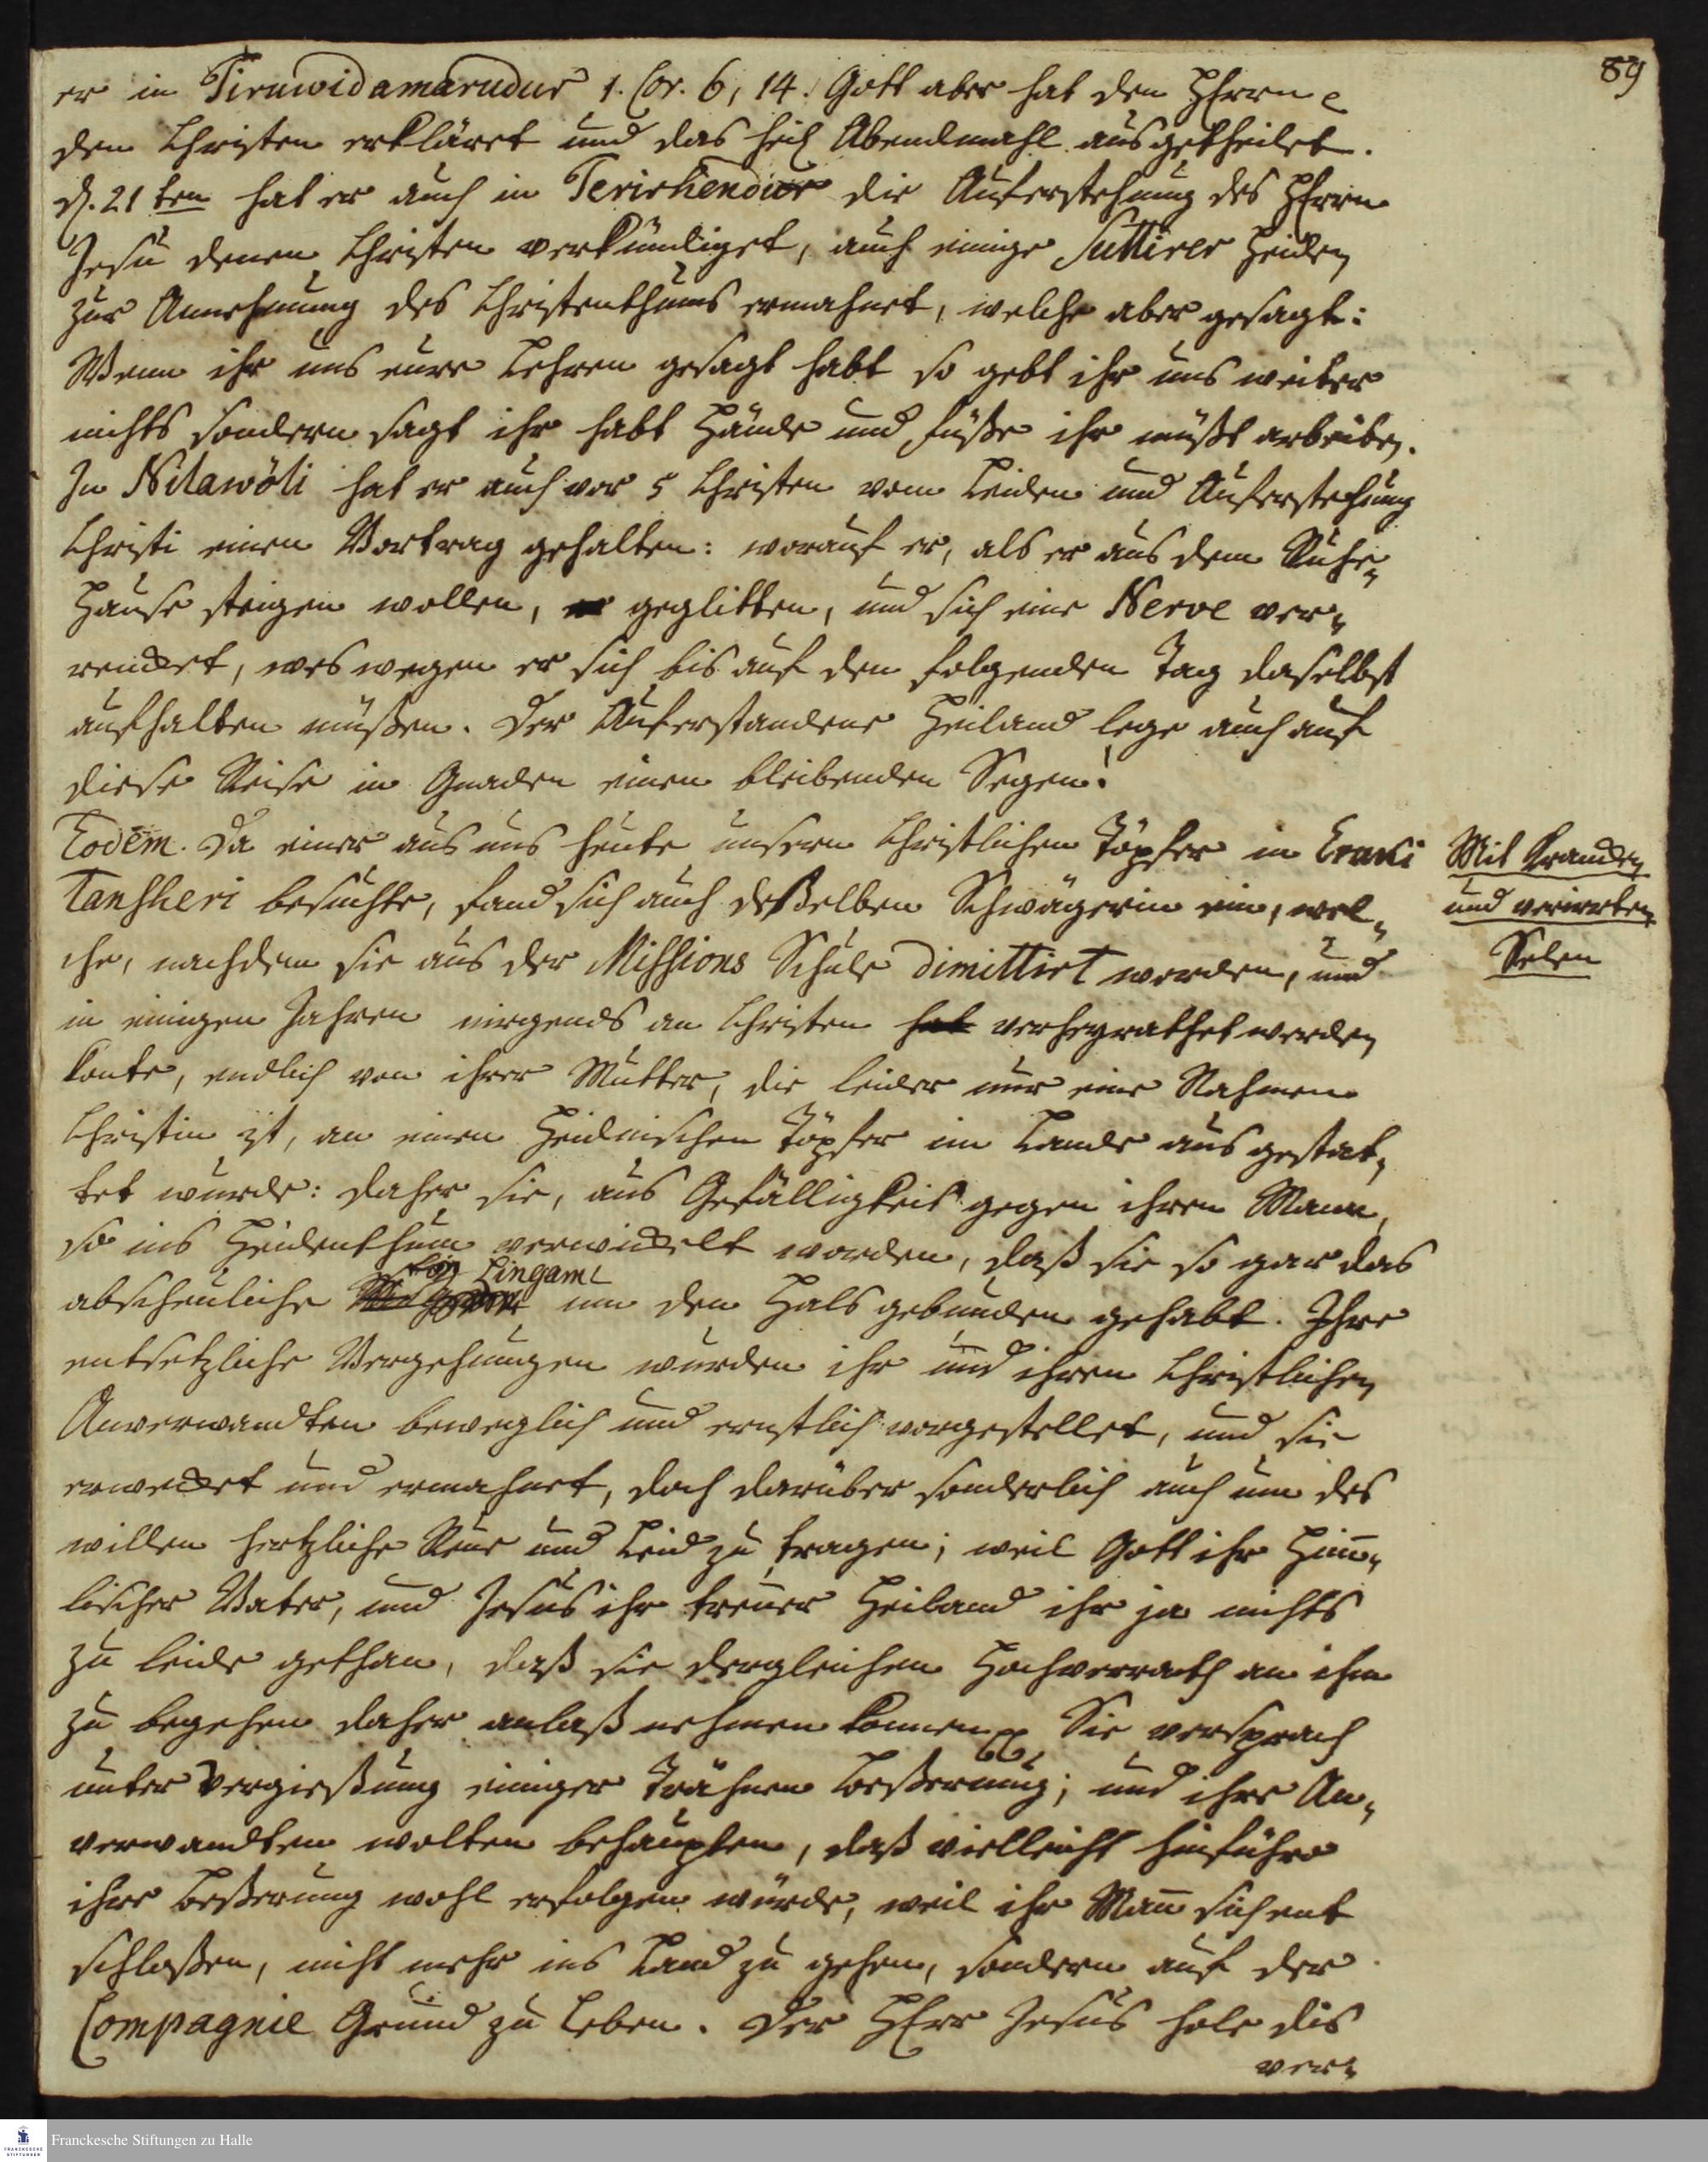 89
er in Tiruwidamarudur 1. Cor. 6, 14. Gott aber hat den HErrn
den Christen erkläret und das heil Abendmahl ausgetheilet.
d. 21 ten hat er auch in die Auferstehung des HErrn
Jesu denen Christen verkündiget, auch einige Suttirer Heiden
zur Annehmung des Christenthums ermahnet, welche aber gesagt:
Wenn ihr uns eure Lehren gesagt habt so gebt ihr uns weiter
nichts sondern sagt ihr habt Hände und Füße ihr müßt arbeiten.
In Nilawöli hat er auch vor 5 Christen vom Leiden und Auferstehung
Christi einen Vortrag gehalten: worauf er, als er aus dem Ruhe„
Hause steigen wollen, geglitten, und sich eine Nerve ver„
rencket, weswegen er sich bis auf den folgenden Tag daselbst
aufhalten müßen. Der Auferstandene Heiland lege auch auf
diese Reise in Gnaden einen bleibenden Segen!
Eodem. Da einer aus uns heute unsern Christlichen Töpfer in
Tansheri besuchte, fand sich auch deßelben Schwägerin ein, wel„
che, nachdem sie aus der Missions Schule dimittirt worden, und
in einigen Jahren nirgends an Christen hat verheyrathet werden
konte, endlich von ihrer Mutter, die leider nur eine Nahmen
Christin ist, an einen Heidnischen Töpfer im Lande ausgestat„
tet wurde: daher sie, aus Gefälligkeit gegen ihren Mann,
so ins Heidenthum verwickelt worden, daß sie so gar das
abscheuliche Lingam um den Hals gebunden gehabt. Ihre
entsetzliche Vergehungen wurden ihr und ihren Christlichen
Anverwandten beweglich und ernstlich vorgestellet, und sie
erwecket und ermahnet, doch darüber sonderlich auch um des
willen hertzliche Reue und Leid zu tragen; weil Gott ihr Him̄„
lischer Vater, und Jesus ihr treuer Heiland ihr ja nichts
zu leide gethan, daß sie dergleichen Hochverrath an ihm
zu begehen daher anlaß nehmen können. Sie versprach
unter Vergießung einiger Trähnen Beßerung; und ihre An„
verwandten wolten behaupten, daß vielleicht hinführo
ihre Beßerung wohl erfolgen würde, weil ihr Man̄ sich ent
schloßen, nicht mehr ins Land zu gehen, sondern auf der
Compagnie Grund zu Leben. Der HErr Jesus hole dis
ver„
Mit
und verirrten
Selen
Franckesche Stiftungen zu Halle